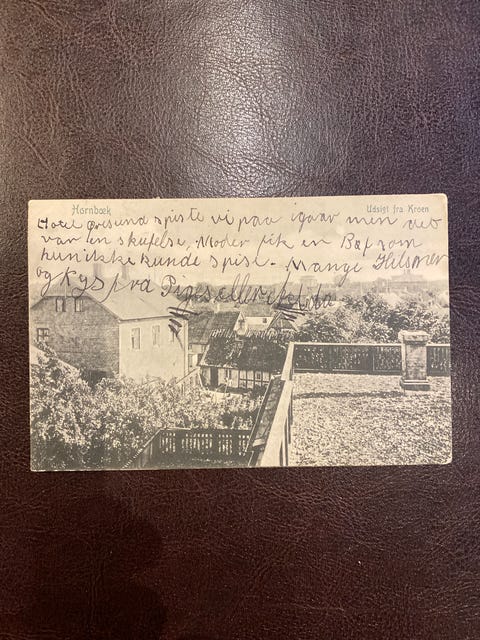 Hornbæk
Udsigt fra Kroen
Hotel Øresund spiste vi paa igaar men det
var en skufelse, Moder fik en Bøf som
hun ikke kunde spise. Mange Hilsner
og Kys fra